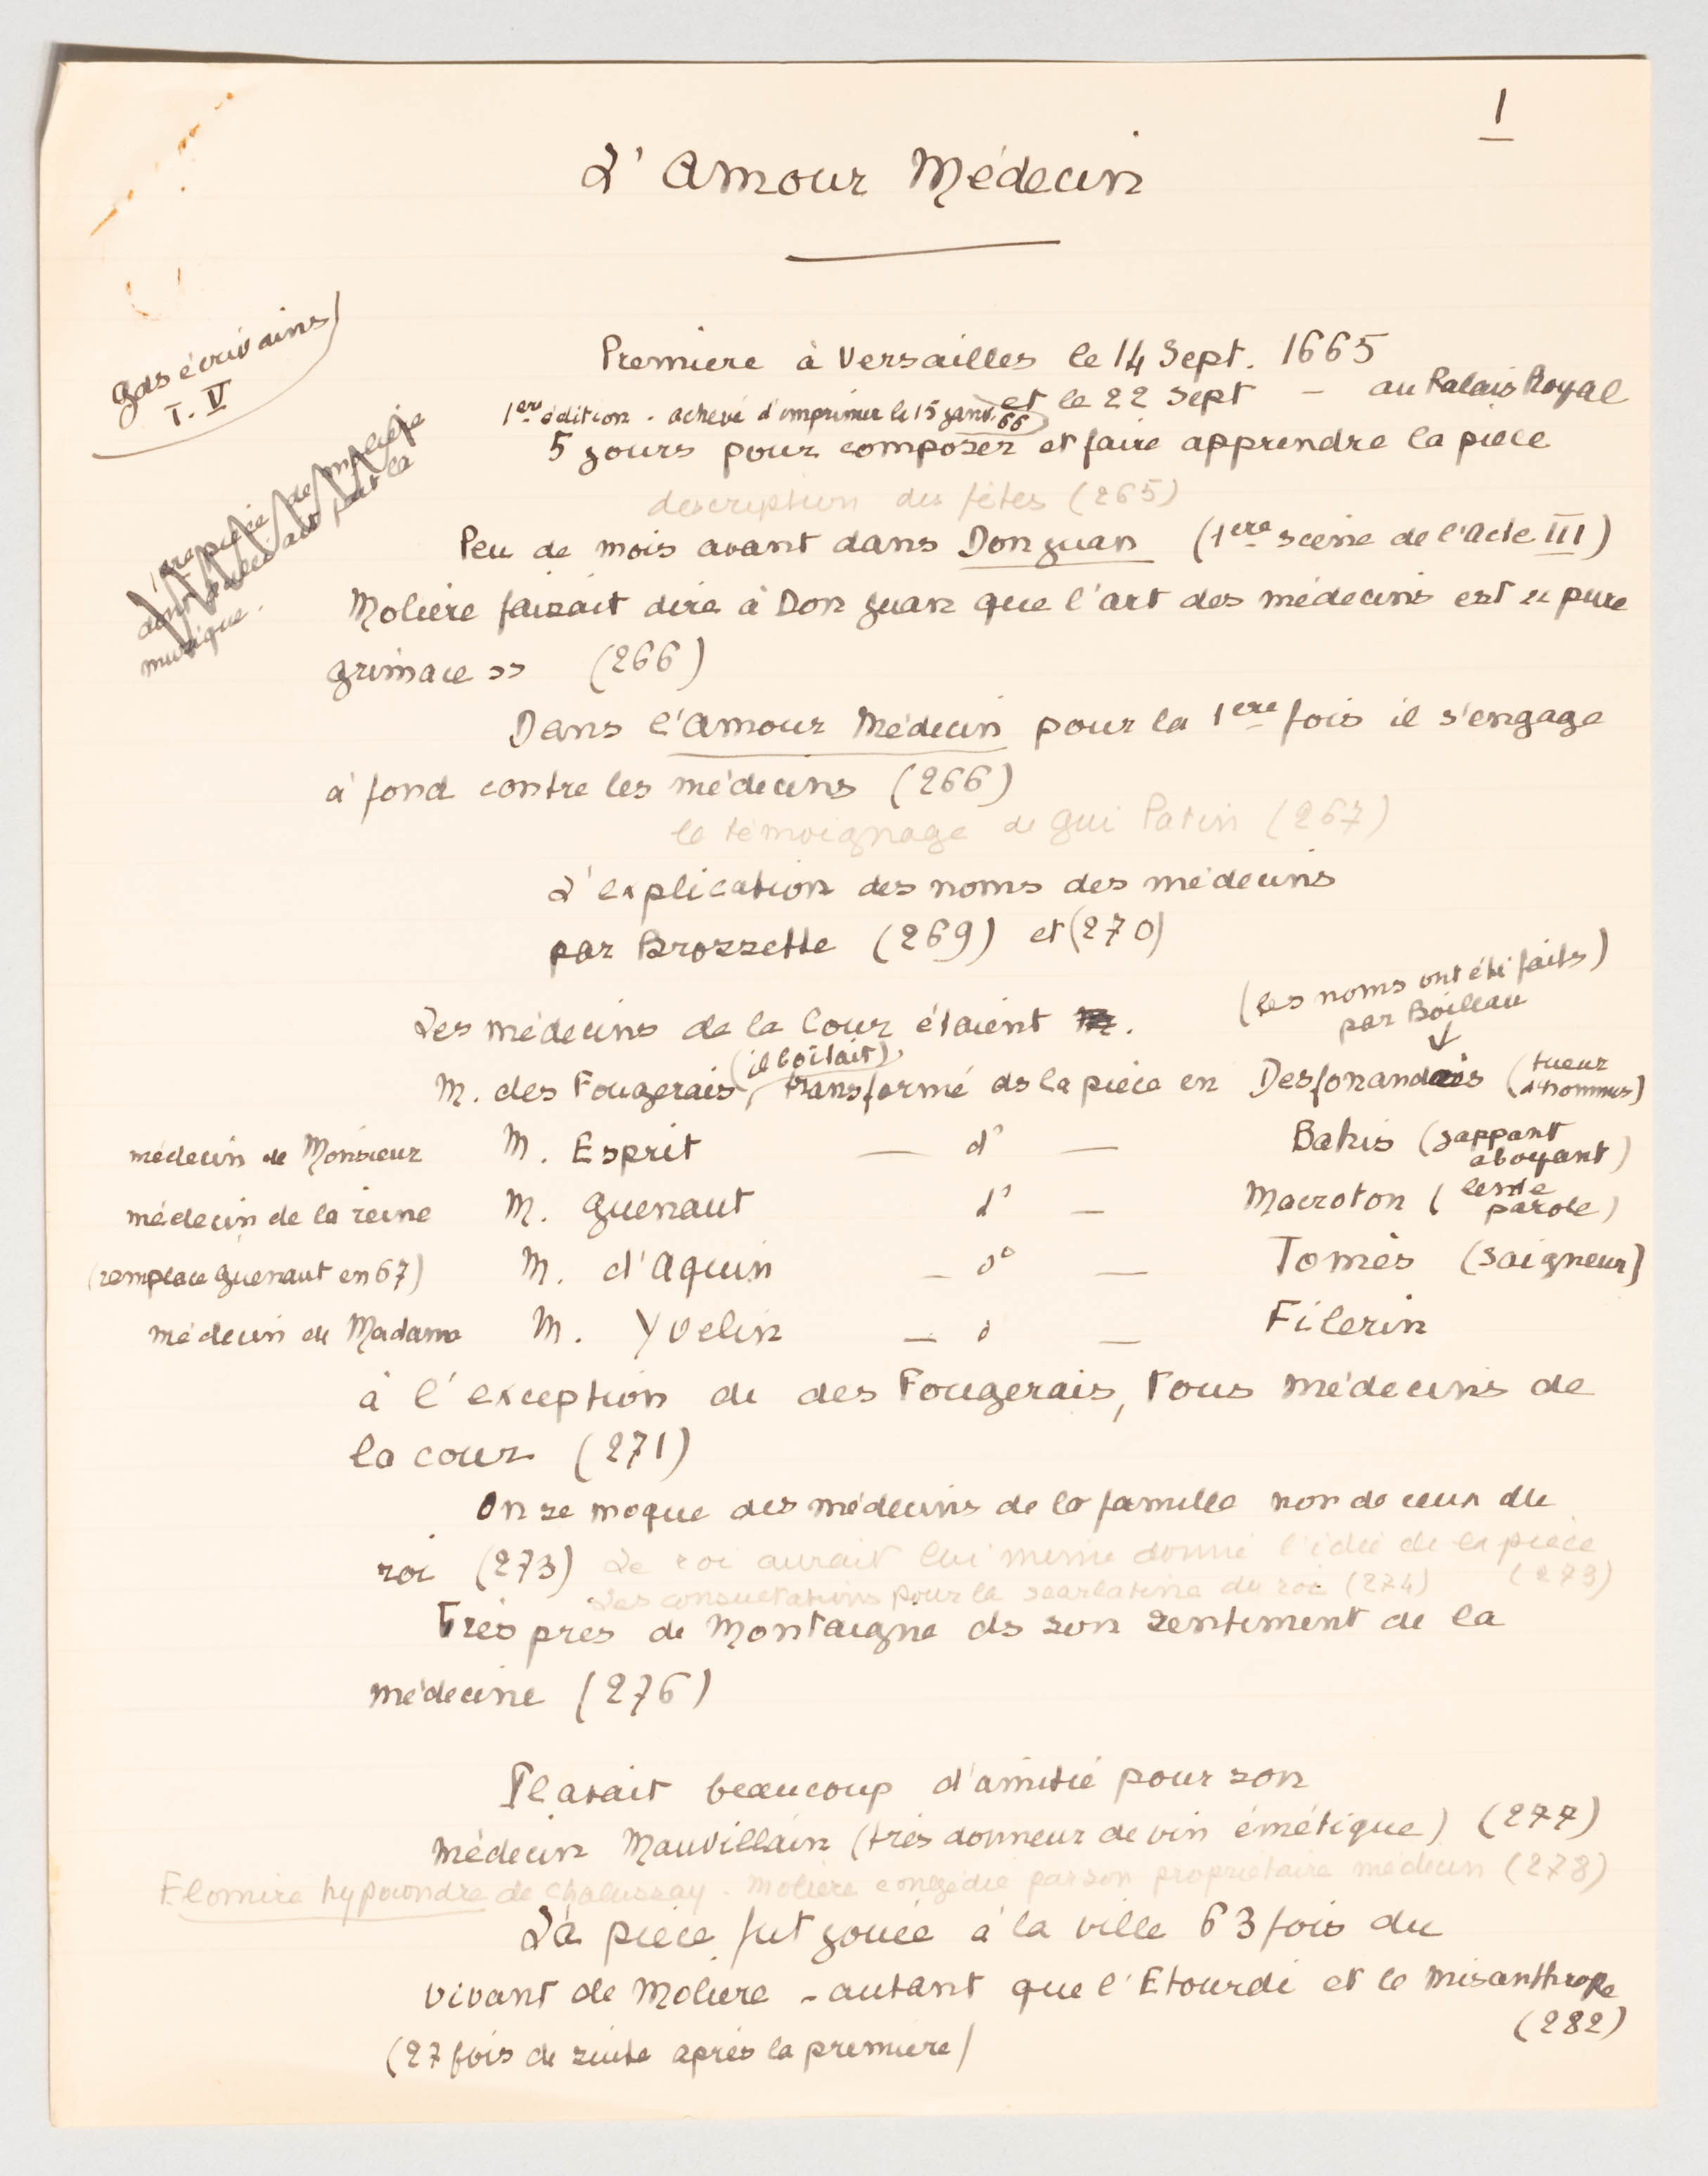 1
L'Amour Médecin
gds écrivains
T. V
Premiere à Versailles le 14 Sept. 1665
et le 22 Sept – au Palais Royal
1ere édition. achevé d'imprimer le 15 janv. 66
5 jours pour composer et faire apprendre la piece
description des fêtes (265)
1ere pièce de Molière
musique.
Peu de mois avant dans Don Juan (1ere scène de l'Acte III)
Molière faisait dire à Don Juan que l'art des médecins est « pure
grimace » (266)
Dans l'Amour Médecin pour la 1ere fois il s'engage
à fond contre les médecins (266)
le témoignage de Gui Patin (267)
L'explication des noms des médecins
par Brossette (269) et (270)
(les noms ont été faits)
par Boileau
Les médecins de la Cour étaient
M. des Fougerais (il boitait), transformé ds la pièce en Desfonandrès (tueur d'hommes)
médecin de Monsieur M. Esprit — d° — Bahis (jappant aboyant)
médecin de la reine M. Guenaut d° — Macroton (lente parole)
(remplace Guenaut en 67) M. d'Aquin — d° — Tomès (saigneur)
médecin de Madame M. Yvelin — d° — Filerin
à l'exception de des Fougerais, tous médecins de
la cour (271)
On se moque des médecins de la famille non de ceux du
roi (273) Le roi aurait lui meme donné l'idée de la pièce (273)
Les consultations pour la scarlatine du roi (274)
Très près de Montaigne ds son sentiment de la
médecine (276)
Il avait beaucoup d'amitié pour son
médecin Mauvillain (très donneur de vin émétique) (277)
Elomire hypocondre de Chalussay. Molière congédié par son propriétaire médecin (278)
La pièce fut jouée à la ville 63 fois du
vivant de Molière – autant que l'Etourdi et le Misanthrope
(282)
(27 fois de suite après la premiere)